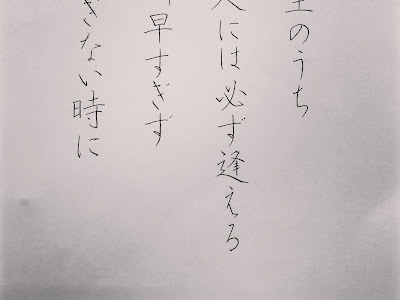 生のうち
人には必ず逢える
早すぎず
ぎない時に